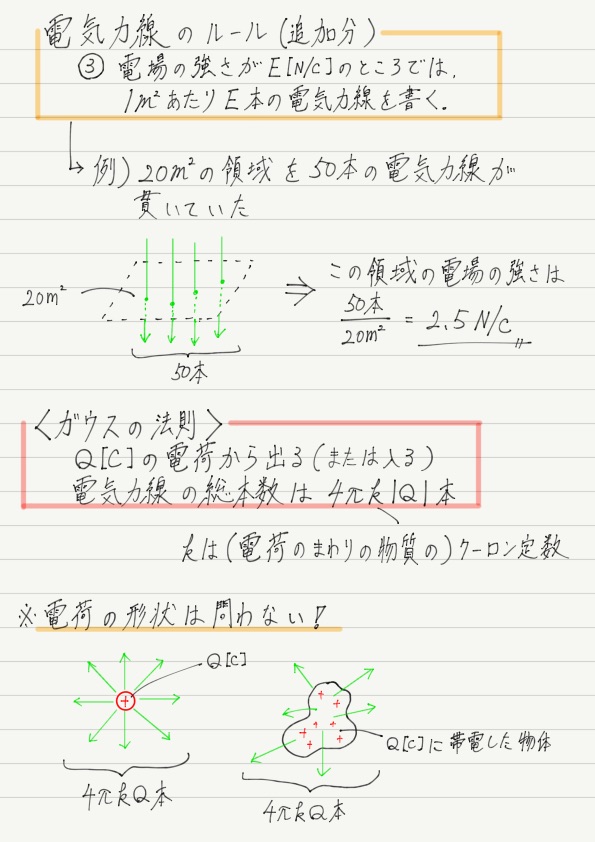 電気力線のルール(追加分)
③ 電場の強さがE[N/C]のところでは,
1m²あたりE本の電気力線を書く.
例) 20m²の領域を50本の電気力線が
貫いていた
20m²
50本
⇒ この領域の電場の強さは
50本
20m²
= 2.5 N/C
〈ガウスの法則〉
Q[C]の電荷から出る(または入る)
電気力線の総本数は 4πk|Q|本
kは(電荷のまわりの物質の)クーロン定数
※電荷の形状は問わない!
Q[C]
+
4πkQ本
+ + + + + + + +
Q[C]に帯電した物体
4πkQ本